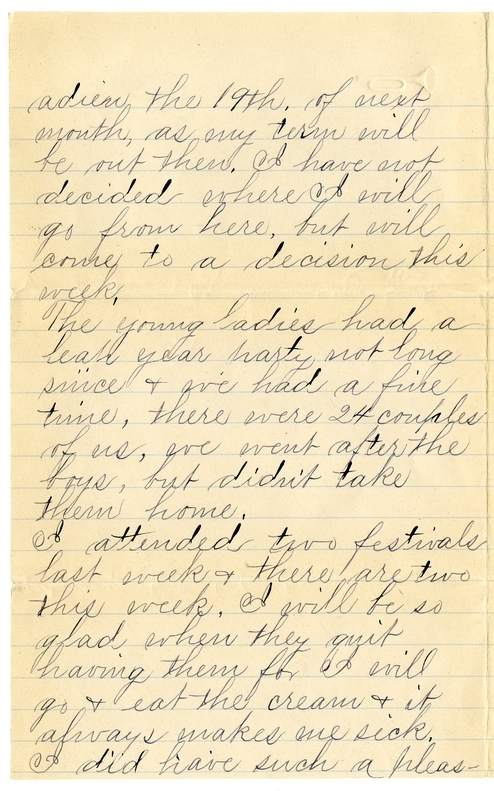 adieu, the 19th. of next
month, as my term will
be out then. I have not
decided where I will
go from here, but will
come to a decision this
week.
The young ladies had a
leap year party not long
since & we had a fine
time, there were 24 couples
of us, we went after the
boys, but didn't take
them home.
I attended two festivals
last week & there are two
this week. I will be so
glad when they quit
having them for I will
go & eat the cream & it
always makes me sick.
I did have such a pleas-